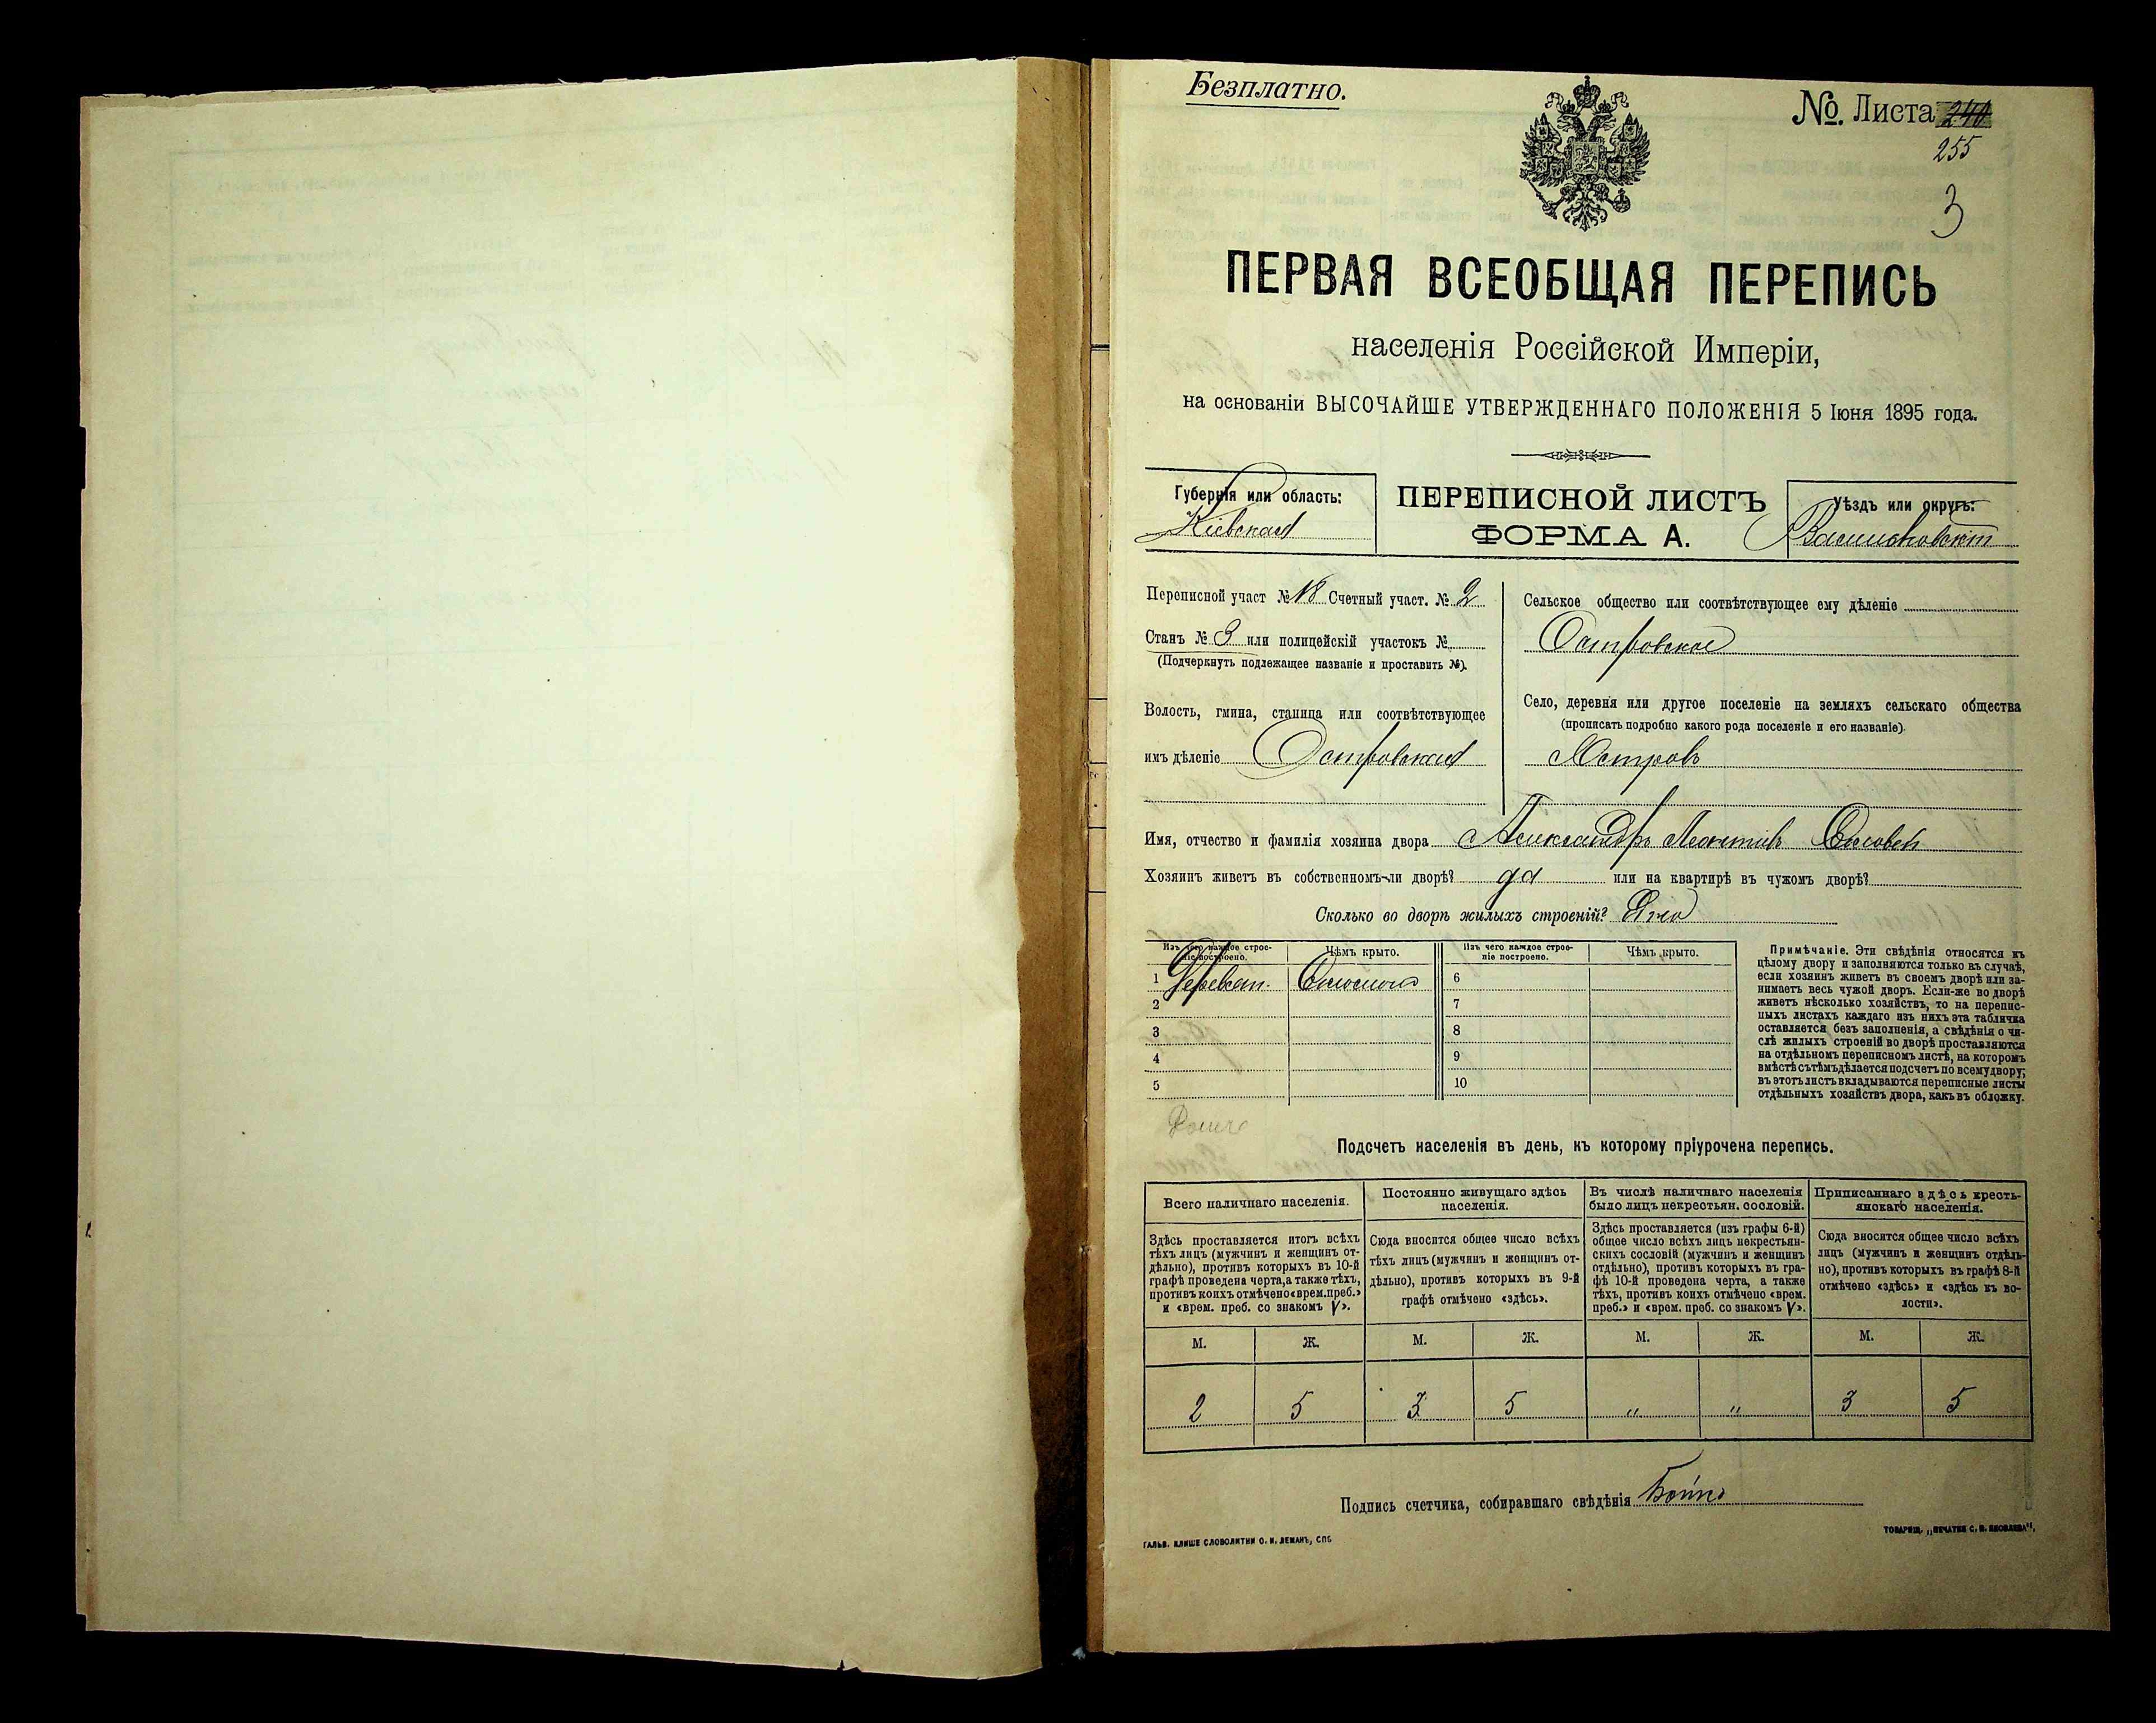 Безплатно.
№. Листа 240
255
3
ПЕРВАЯ ВСЕОБЩАЯ ПЕРЕПИСЬ
населенія Россійской Имперіи,
на основаніи ВЫСОЧАЙШЕ УТВЕРЖДЕННАГО ПОЛОЖЕНІЯ 5 Іюня 1895 года.
Губернія или область:
Кіевская
ПЕРЕПИСНОЙ ЛИСТЪ
ФОРМА А.
Уѣздъ или округъ:
Васильковскій
Переписной участ № 18 Счетный участ. № 2
Станъ № 3 или полицейскій участокъ №
(Подчеркнуть подлежащее названіе и проставить №).
Волость, гмина, станица или соотвѣтствующее
имъ дѣленіе Островская
Сельское общество или соотвѣтствующее ему дѣленіе
Островское
Село, деревня или другое поселеніе на земляхъ сельскаго общества
(прописать подробно какого рода поселеніе и его названіе).
Островъ
Имя, отчество и фамилія хозяина двора Александръ Леонтіевъ
Хозяинъ живетъ въ собственномъ-ли дворѣ? да или на квартирѣ въ чужомъ дворѣ?
Сколько во дворѣ жилыхъ строеній? Одно
Изъ чего каждое строеніе построено. Чѣмъ крыто. Изъ чего каждое строеніе построено. Чѣмъ крыто.
1 Деревян. Соломою 6
2 7
3 8
4 9
5 10
Примѣчаніе. Эти свѣдѣнія относятся къ
цѣлому двору и заполняются только въ случаѣ,
если хозяинъ живетъ въ своемъ дворѣ или за-
нимаетъ весь чужой дворъ. Если-же во дворѣ
живетъ нѣсколько хозяйствъ, то на перепис-
ныхъ листахъ каждаго изъ нихъ эта табличка
оставляется безъ заполненія, а свѣдѣнія о чи-
слѣ жилыхъ строеній во дворѣ проставляются
на отдѣльномъ переписномъ листѣ, на которомъ
вмѣстѣ съ тѣмъ дѣлается подсчетъ по всему двору;
въ этотъ листъ вкладываются переписные листы
отдѣльныхъ хозяйствъ двора, какъ въ обложку.
Подсчетъ населенія въ день, къ которому пріурочена перепись.
Всего наличнаго населенія.
Здѣсь проставляется итогъ всѣхъ
тѣхъ лицъ (мужчинъ и женщинъ от-
дѣльно), противъ которыхъ въ 10-й
графѣ проведена черта, а также тѣхъ,
противъ коихъ отмѣчено «врем. преб.»
и «врем. преб. со знакомъ V».
Постоянно живущаго здѣсь
населенія.
Сюда вносится общее число всѣхъ
тѣхъ лицъ (мужчинъ и женщинъ от-
дѣльно), противъ которыхъ въ 9-й
графѣ отмѣчено «здѣсь».
Въ числѣ наличнаго населенія
было лицъ некрестьян. сословій.
Здѣсь проставляется (изъ графы 6-й)
общее число всѣхъ лицъ некрестьян-
скихъ сословій (мужчинъ и женщинъ
отдѣльно), противъ которыхъ въ гра-
фѣ 10-й проведена черта, а также
тѣхъ, противъ коихъ отмѣчено «врем.
преб.» и «врем. преб. со знакомъ V».
Приписаннаго здѣсь кресть-
янскаго населенія.
Сюда вносится общее число всѣхъ
лицъ (мужчинъ и женщинъ отдѣль-
но), противъ которыхъ въ графѣ 8-й
отмѣчено «здѣсь» и «здѣсь къ во-
лости».
М. Ж. М. Ж. М. Ж. М. Ж.
2 5 3 5 " " 3 5
Подпись счетчика, собиравшаго свѣдѣнія
ГАЛЬВ. КЛИШЕ СЛОВОЛИТНИ О. И. ЛЕМАНЪ, СПБ.
ТОВАРИЩ. „ПЕЧАТНЯ С. П. ЯКОВЛЕВА".